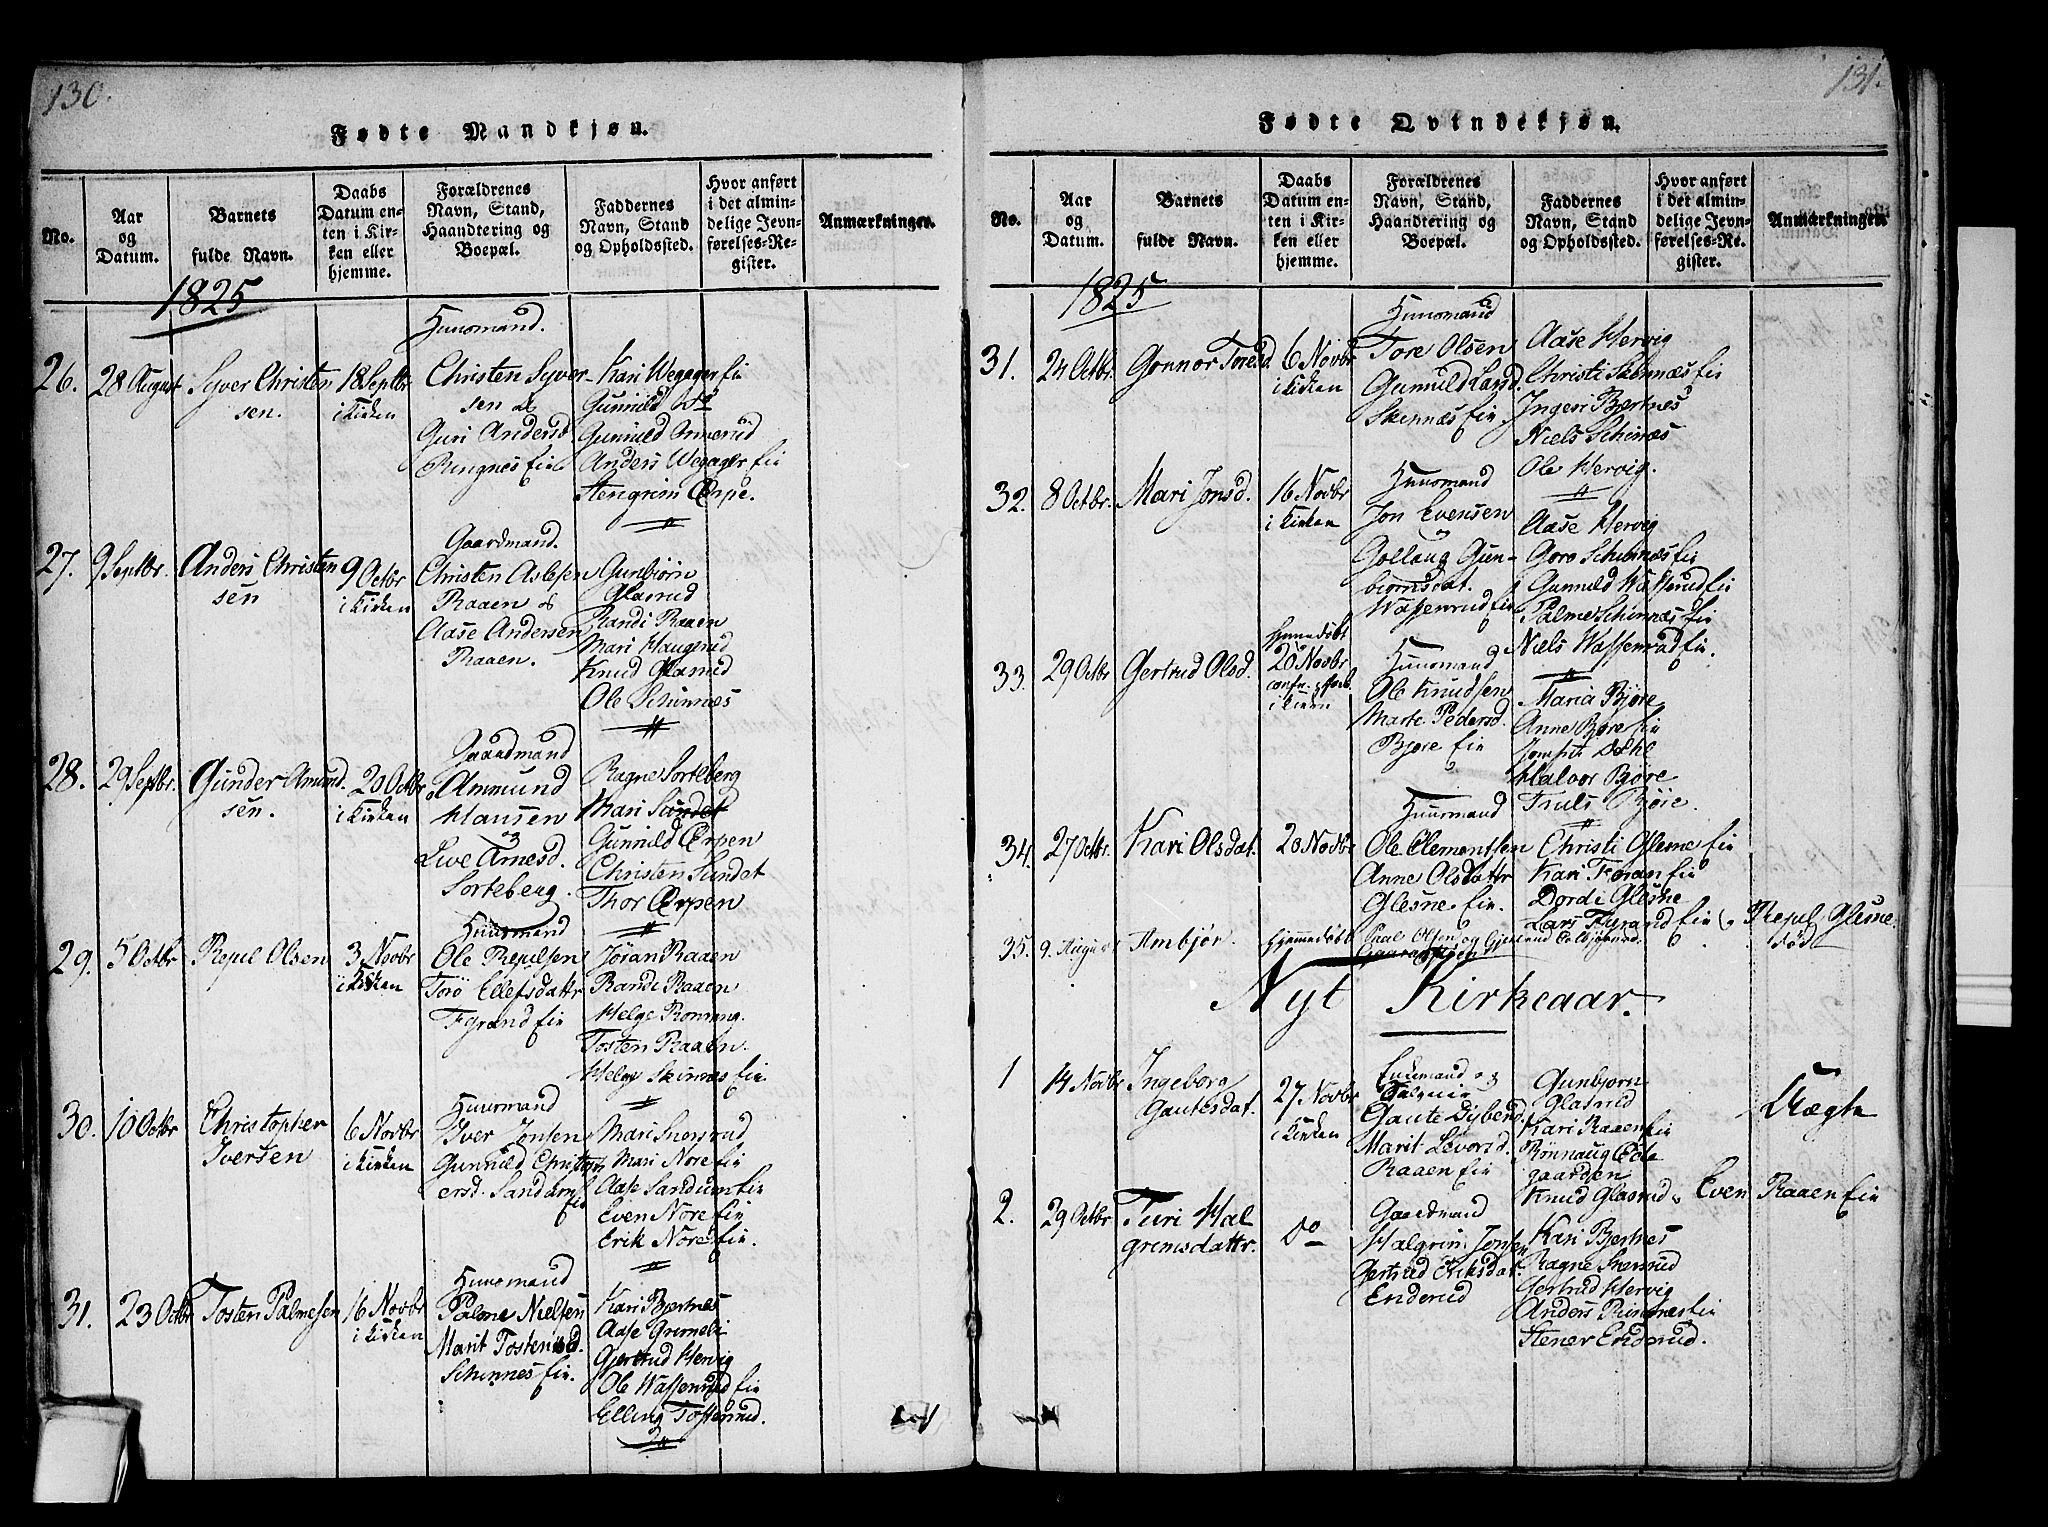 130.
Fødte Mandkjøn.
No.
Aar
og
Datum.
Barnets
fulde Navn.
Daabs
Datum en-
ten i Kir-
ken eller
hjemme.
Forældrenes
Navn, Stand,
Haandtering og
Boepæl.
Faddernes
Navn, Stand
og Opholdssted.
Hvor anført
i det almin-
delige Jevn-
førelses-Re-
gister.
Anmærkninger.
1825
26.
28 August
Syver Christen
sen.
18 Septbr
i Kirken
Huusmand.
Christen Syver
sen &
Guri Andersd
Ringnes Eie
Kari Wegager Eie
Gunnild Do
Gunnild Innerud
Anders Wegager Eie
Stengrim Œrpe.
27.
9 Septbr.
Anders Christen
sen
9 Octbr
i Kirken
Gaardmand.
Christen Aslesen
Raaen &
Aase Andersen
Raaen.
Gunbiørn
Glasrud
Randi Raaen
Mari Haugerud
Knud Glasrud
Ole Schinnæs
28.
29 Septbr.
Gunder Amund
sen.
20 Octbr
i Kirken
Gaardmand
Ammund
Hansen
og
Live Arnesd.
Sorteberg.
Ragne Sorteberg
Mari Sundet
Gunnild Œrpen
Christen Sundet
Thor Œrpen
29.
5 Octbr
Repul Olsen
3 Novbr
i Kirken
Huusmand
Ole Repulsen
Torø Ellefsdattr
Fgrand Eie
Jøran Raaen
Randi Raaen
Helge Rønning.
Tosten Raaen.
Helge Skinnæs Eie
30.
10 Octbr
Christopher
Iversen
6 Novbr
i Kirken
Huusmand
Iver Jonsen
Gunnild Christoph
ersd. Sandum
Eie
Mari Snersrud
Mari Nore Eie
Aase Sandum Eie
Even Nore Eie
Erik Nore Eie.
31.
23 Octbr
Tosten Palmesen
16 Novbr
i Kirken
Huusmand
Palme Nielsen
Marit Tostensd.
Schinnes Eie.
Kari Bjertnes
Aase Grimeli
Gjertrud Hervig
Ole Wassenrud Eie
Elling Tosserud.
131.
Fødte Qvindekjøn.
No.
Aar
og
Datum.
Barnets
fulde Navn.
Daabs
Datum en-
ten i Kir-
ken eller
hjemme.
Forældrenes
Navn, Stand,
Haandtering og
Boepæl.
Faddernes
Navn, Stand
og Opholdssted.
Hvor anført
i det almin-
delige Jevn-
førelses-Re-
gister.
Anmærkninger.
1825
31.
24 Octbr.
Gonnor Toresd
6 Novbr
i Kirken
Huusmand
Tore Olsen
Gunnild Land
Skinnæs Eie
Aase Hervig
Christi Skinnæs Eie
Ingeri Bjertnes
Niels Schinæs
Ole Hervig.
32.
8 Octbr.
Mari Jonsd.
16 Novbr
i Kirken
Huusmand
Jon Evensen
Gollaug Gun-
biørnsdat.
Wassenrud Eie
Aase Hervig
Goro Schinnæs Eie
Gunnild Wassenrud Eie
Palme Schinnæs Eie
Niels Wassenrud Eie.
33.
29 Octbr
Gertrud Olsd.
hjemmedøbt
20 Novbr
i Kirken
Huusmand
Ole Knudsen
Marte Pedersd.
Bjøre Eie
Maria Bjøre
Anne Bjøre Eie
Halvor Bjøre
Truls Bjøre.
34.
27 Octbr.
Kari Olsdat.
20 Novbr
Huusmand
Ole Clementsen
Anne Olsdattr
Glesne Eie.
Christi Glesne Eie
Kari Fgran Eie
Dordi Glesne
Lars Fgrand Eie
Repul Glesne.
35.
9. August
Ambjør.
hjemmedøbt
Paal Olsen og
død
Nyt Kirkeaar.
1
14 Novbr
Ingeborg
Gautesdat.
27 Novbr
i Kirken
Gaute
Marit Levorsd.
Raaen Eie
Gunbjorn
Glasrud
Kari Raaen Eie
Rønnaug Ode
gaarden
Knud Glasrud, Even Raaen Eie
Uægte
2.
29 Octbr
Turi Hal
grimsdattr.
Do
Gaardmand
Halgrim Jonsen
Gertrud Eriksdat.
Enderud
Kari Bjertnes
Ragne Snersrud
Gertrud Hervig
Anders Ringnes Eie
Stener Enderud.